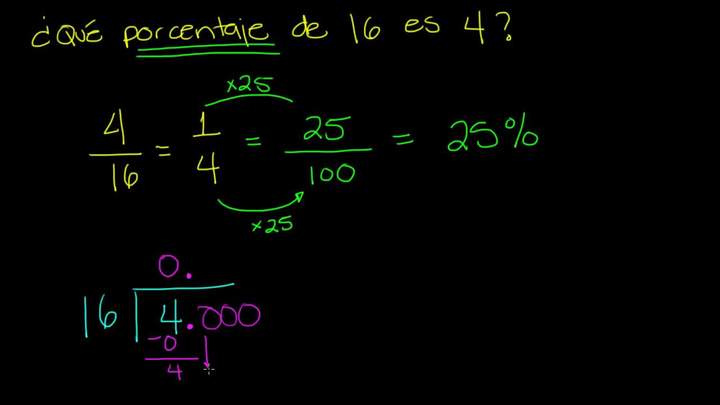 ¿Qué porcentaje de 16 es 4?
×25
4/16 = 1/4 = 25/100 = 25%
×25
0.
16 | 4.000
-0
4